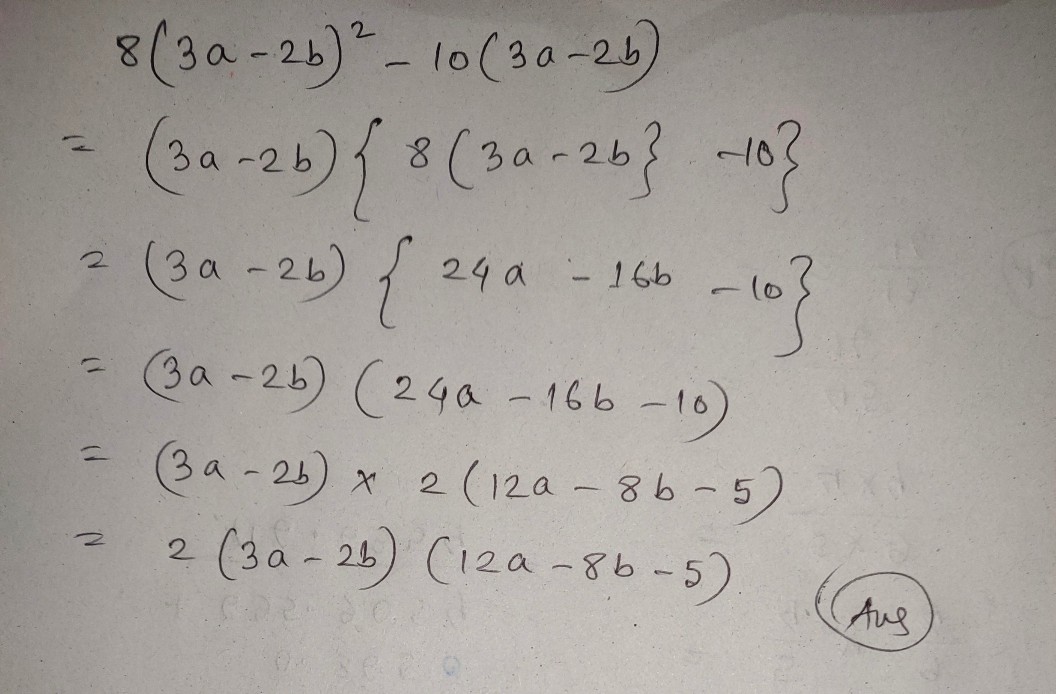 8(3a-2b)² - 10(3a-2b)
= (3a-2b){ 8(3a-2b} -10}
= (3a-2b) { 24a - 16b -10}
= (3a-2b) (24a -16b -10)
= (3a-2b) x 2(12a - 8b - 5)
= 2(3a-2b) (12a -8b -5)
Ans